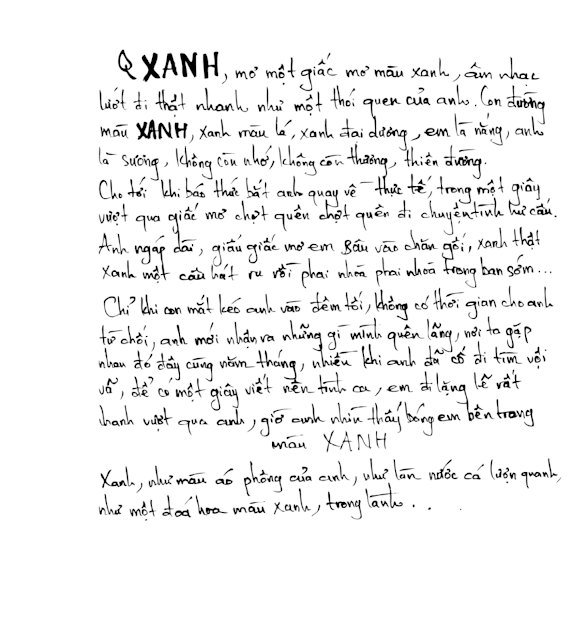 Q XANH, mơ một giấc mơ màu xanh, âm nhạc
lướt đi thật nhanh như một thói quen của anh. Con đường
màu XANH, xanh màu lá, xanh đại dương, em là nắng, anh
là sương, không còn nhớ, không còn thương, thiên đường.
Cho tới khi báo thức bắt anh quay về thực tế, trong một giây
vượt qua giấc mơ chợt quên chợt quên đi chuyện tình hư cấu.
Anh ngáp dài, giấu giấc mơ em vào chăn gối, xanh thật
xanh một câu hát ru rồi phai nhoà phai nhoà trong ban sớm...
Chỉ khi con mắt kéo anh vào đêm tối, không có thời gian cho anh
từ chối, anh mới nhận ra những gì mình quên lãng, nơi ta gặp
nhau đó đây cùng năm tháng, nhiều khi anh đã cố đi tìm vội
vã, để có một giây viết nên tình ca, em đi lặng lẽ rất
nhanh vượt qua anh, giờ anh nhìn thấy bóng em bên trang
màu XANH
Xanh, như màu áo phông của anh, như làn nước cá lượn quanh,
như một đoá hoa màu xanh, trong lành...